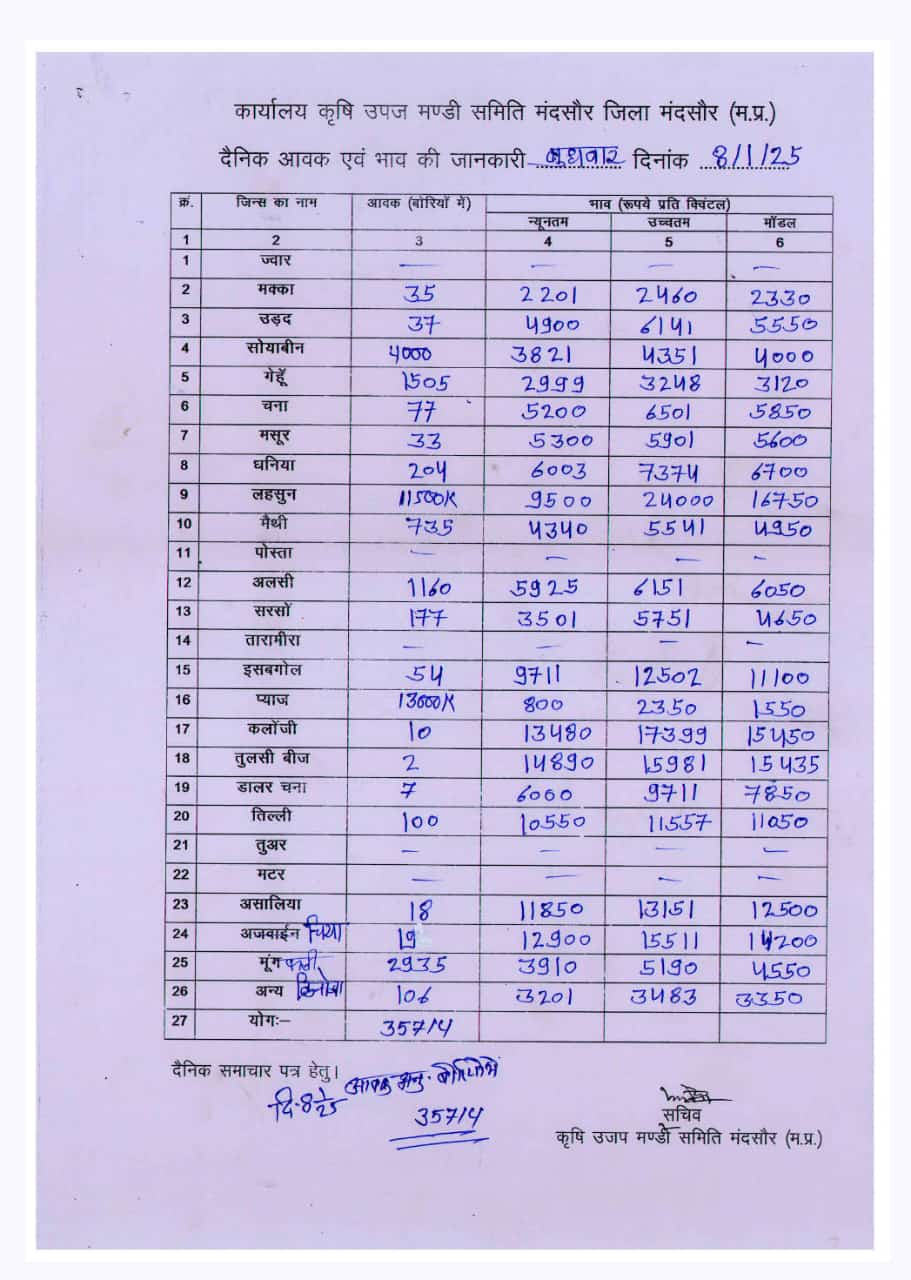 कार्यालय कृषि उपज मण्डी समिति मंदसौर जिला मंदसौर (म.प्र.)
दैनिक आवक एवं भाव की जानकारी बुधवार दिनांक 8/1/25
क्रं. जिन्स का नाम आवक (बोरियों में) भाव (रूपये प्रति क्विंटल)
न्यूनतम उच्चतम मॉडल
1 2 3 4 5 6
1 ज्वार — — — —
2 मक्का 35 2201 2460 2330
3 उड़द 37 4900 6141 5550
4 सोयाबीन 4000 3821 4351 4000
5 गेहूँ 1505 2999 3248 3120
6 चना 77 5200 6501 5850
7 मसूर 33 5300 5901 5600
8 धनिया 204 6003 7374 6700
9 लहसुन 11500K 9500 24000 16750
10 मैथी 735 4340 5541 4950
11 पोस्ता — — — —
12 अलसी 1160 5925 6151 6050
13 सरसों 177 3501 5751 4650
14 तारामीरा — — — —
15 इसबगोल 54 9711 12502 11100
16 प्याज 13000K 800 2350 1550
17 कलोंजी 10 13480 17399 15450
18 तुलसी बीज 2 14890 15981 15435
19 डालर चना 7 6000 9711 7850
20 तिल्ली 100 10550 11557 11050
21 तुअर — — — —
22 मटर — — — —
23 असालिया 18 11850 13151 12500
24 अजवाईन चिया 19 12900 15511 14200
25 मूंग फली 2935 3910 5190 4550
26 अन्य 106 3201 3483 3350
27 योगः– 35714
दैनिक समाचार पत्र हेतु।
दि. 8/1/25 आवक अनु. बोरियों में
35714
सचिव
कृषि उजप मण्डी समिति मंदसौर (म.प्र.)